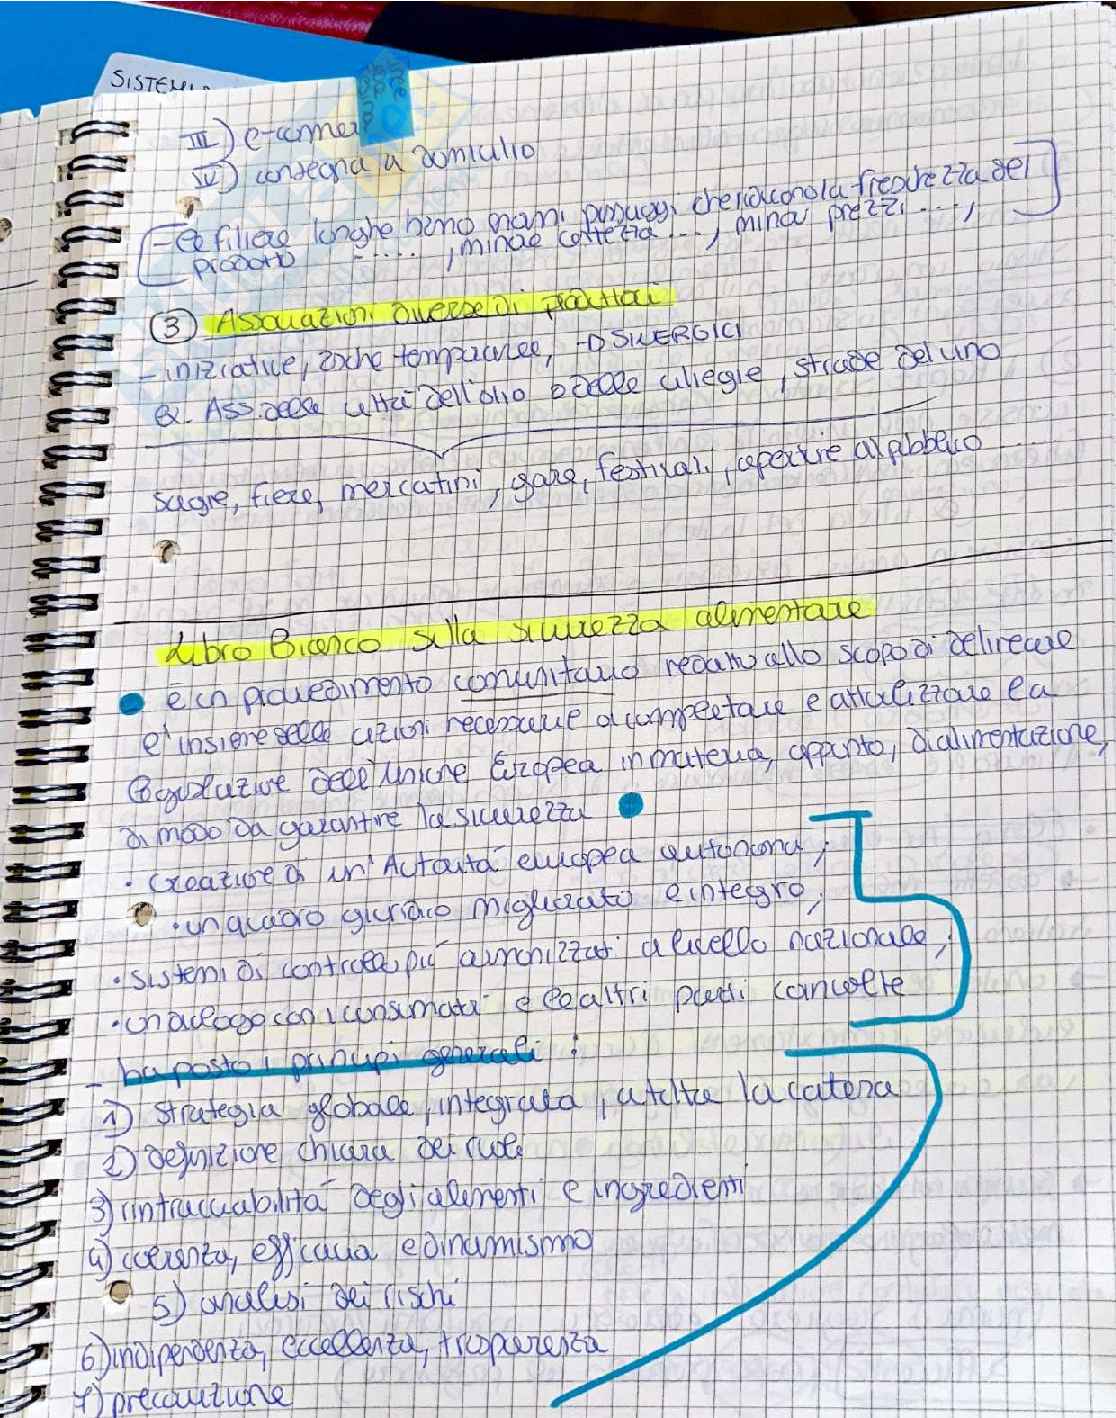 SISTEMI
III) e-commer
IV) consegna a domicilio
- le filiere lunghe hanno mani passaggi che riducono la freschezza del
prodotto ......, minor certezza ..., minor prezzi ...,
3 Associazioni diverse di produttori
- iniziative, anche temporanee, → SINERGICI
Es. Ass. delle città dell'olio o delle ciliegie, strade del vino
sagre, fiere, mercatini, gare, festival, aperture al pubblico
Libro Bianco sulla sicurezza alimentare
è un provvedimento comunitario recante allo scopo di delineare
l'insieme delle azioni necessarie a completare e attualizzare la
legislazione dell'Unione Europea in materia, appunto, di alimentazione,
di modo da garantire la sicurezza
· Creazione di un'Autorità europea autonoma;
· un quadro giuridico migliorato e integro;
· sistemi di controllo più armonizzati a livello nazionale;
· un dialogo con i consumatori e le altri parti coinvolte
- ha posto i principi generali:
1) strategia globale, integrata, a tutta la catena
2) definizione chiara dei ruoli
3) rintracciabilità degli alimenti e ingredienti
4) coerenza, efficacia e dinamismo
5) analisi dei rischi
6) indipendenza, eccellenza, trasparenza
7) precauzione